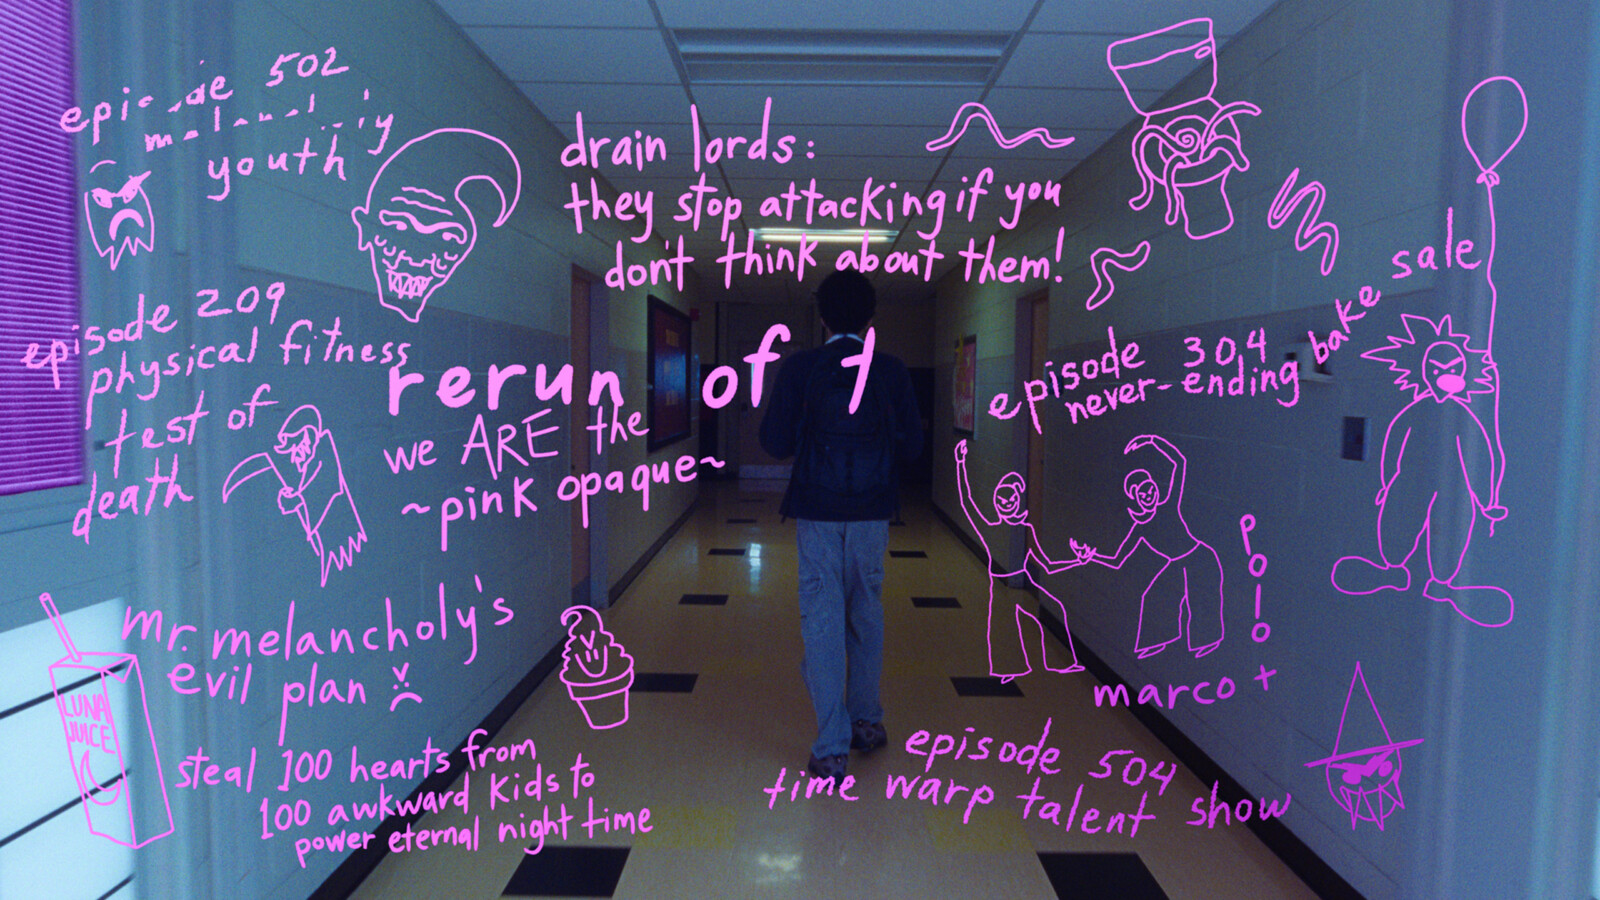 502
youth
drain lords:
they stop attacking if you
don't think about them!
episode 209
physical fitness
test of
death
rerun of
we ARE the
~pink opaque~
episode 304
never-ending
bake sale
polo
marco +
mr. melancholy's
evil plan
LUNA
JUICE
steal 100 hearts from
100 awkward kids to
power eternal night time
episode 504
time warp talent show